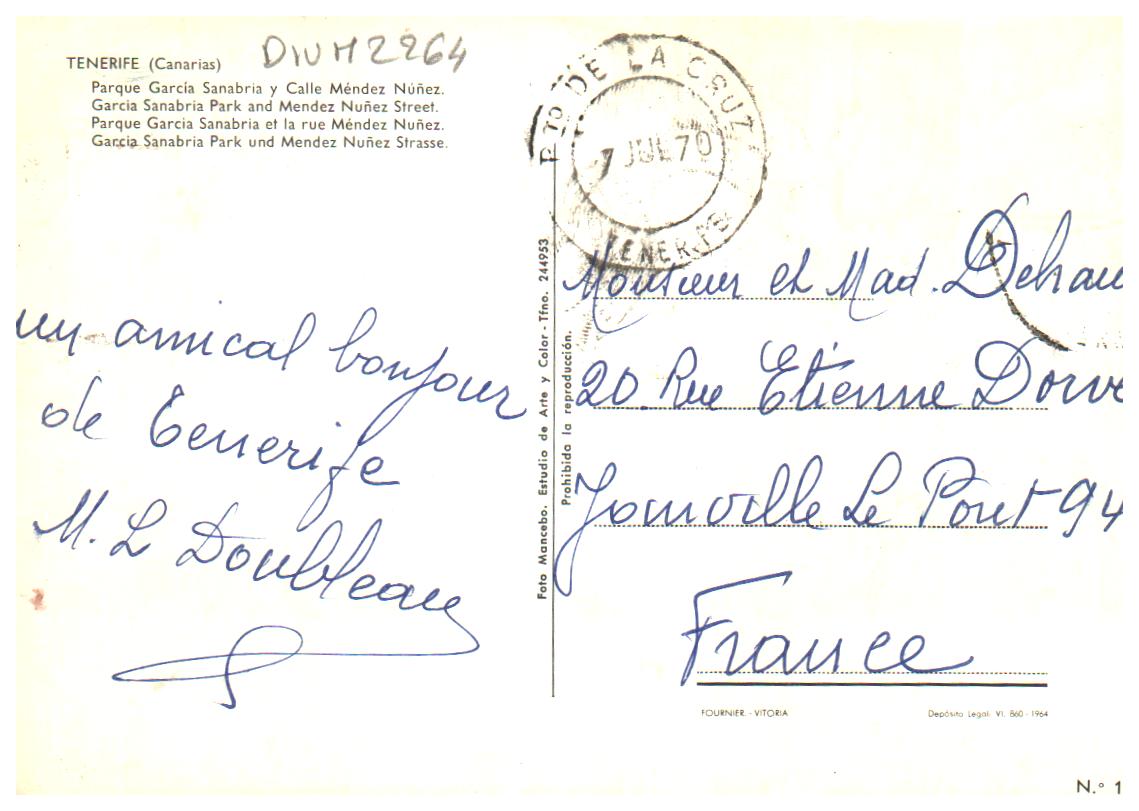 TENERIFE (Canarias)
DIVM2264
Parque García Sanabria y Calle Méndez Núñez.
Garcia Sanabria Park and Mendez Nuñez Street.
Parque Garcia Sanabria et la rue Méndez Nuñez.
Garcia Sanabria Park und Mendez Nuñez Strasse.
PTO DE LA CRUZ
7 JUL 70
TENERIFE
un amical bonjour
de Tenerife
M. L Doubleau
Foto Mancebo. Estudio de Arte y Color - Tfno. 244953
Prohibida la reproducción.
Monsieur et Mad.
20 Rue Etienne
Joinville Le Pont 94
France
FOURNIER. - VITORIA
Depósito Legal: VI. 860 - 1964
N.º 1